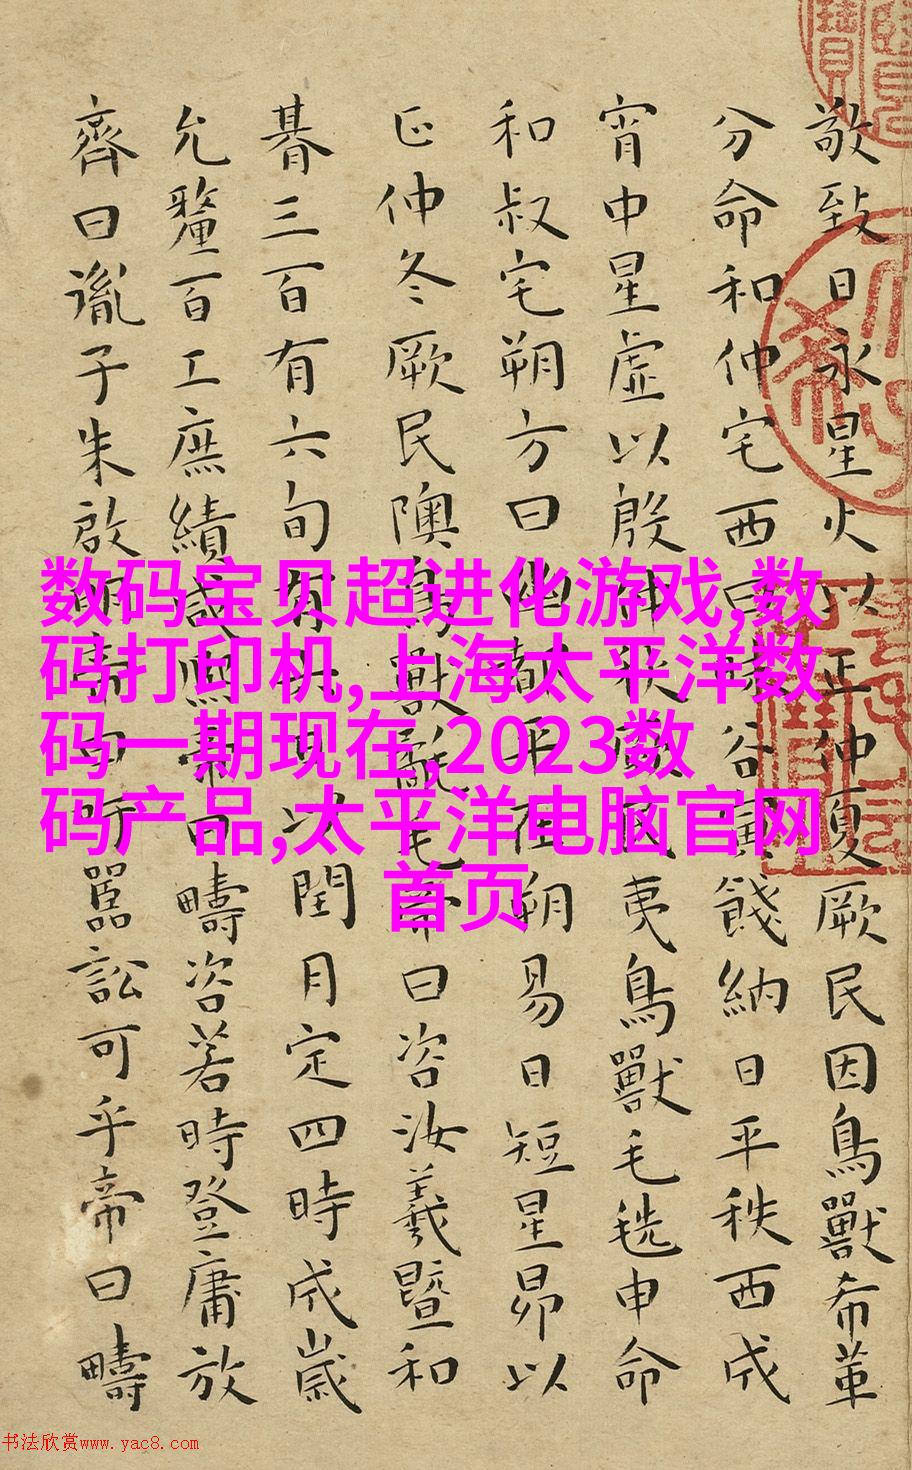 敬致日永星火以正仲夏厥民因鳥獸希革
分命和仲宅西曰昧谷寅餞納日平秩西成
宵中星虛以殷仲秋厥民夷鳥獸毛毨申命
和叔宅朔方曰幽都平在朔易日短星昴以
正仲冬厥民隩鳥獸氄毛帝曰咨汝羲暨和
朞三百有六旬有六日以閏月定四時成歲
允釐百工庶績咸熙帝曰疇咨若時登庸放
齊曰胤子朱啟明帝曰吁嚚訟可乎帝曰疇
数码宝贝超进化游戏,数
码打印机,上海太平洋数
码一期现在,2023数
码产品,太平洋电脑官网
首页
书法欣赏www.yac8.com